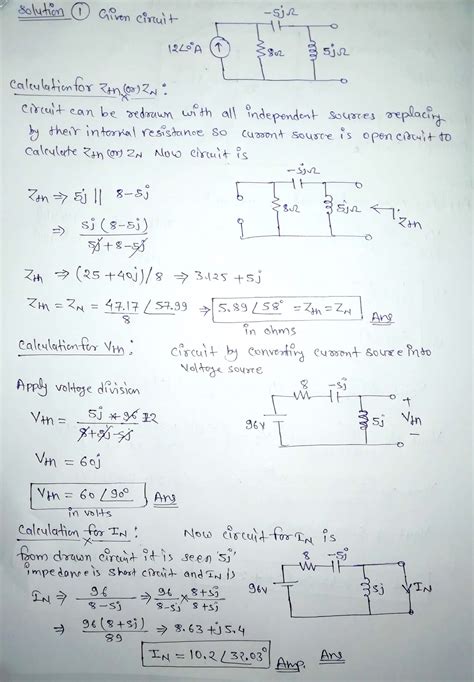 Solution ① Given circuit
-5jΩ
12∠0°A
8Ω
5jΩ
Calculation for Zth (or) ZN :
Circuit can be redrawn with all independent sources replacing
by their internal resistance so current source is open circuit to
calculate Zth (or) ZN Now circuit is
-5jΩ
8Ω
5jΩ
Zth
Zth ⇒ 5j || 8-5j
⇒ 5j (8-5j)
5j+8-5j
Zth ⇒ (25 + 40j)/8 ⇒ 3.125 + 5j
Zth = ZN = 47.17 ∠57.99 ⇒ 5.89 ∠58° = Zth = ZN Ans
8
in ohms
Calculation for Vth :
circuit by converting current source into
voltage source
Apply voltage division
Vth = 5j * 96 12
8+5j-5j
8
-5j
96V
5j
+
Vth
-
Vth = 60j
Vth = 60 ∠90° Ans
in volts
Calculation for IN :
Now circuit for IN is
from drawn circuit it is seen '5j'
impedance is short circuit and IN is
8
-5j
96V
5j
IN
IN ⇒ 96 ⇒ 96 × 8+5j
8-5j 8-5j 8+5j
⇒ 96(8+5j) ⇒ 8.63 + j5.4
89
IN = 10.2 ∠32.03° Amp. Ans